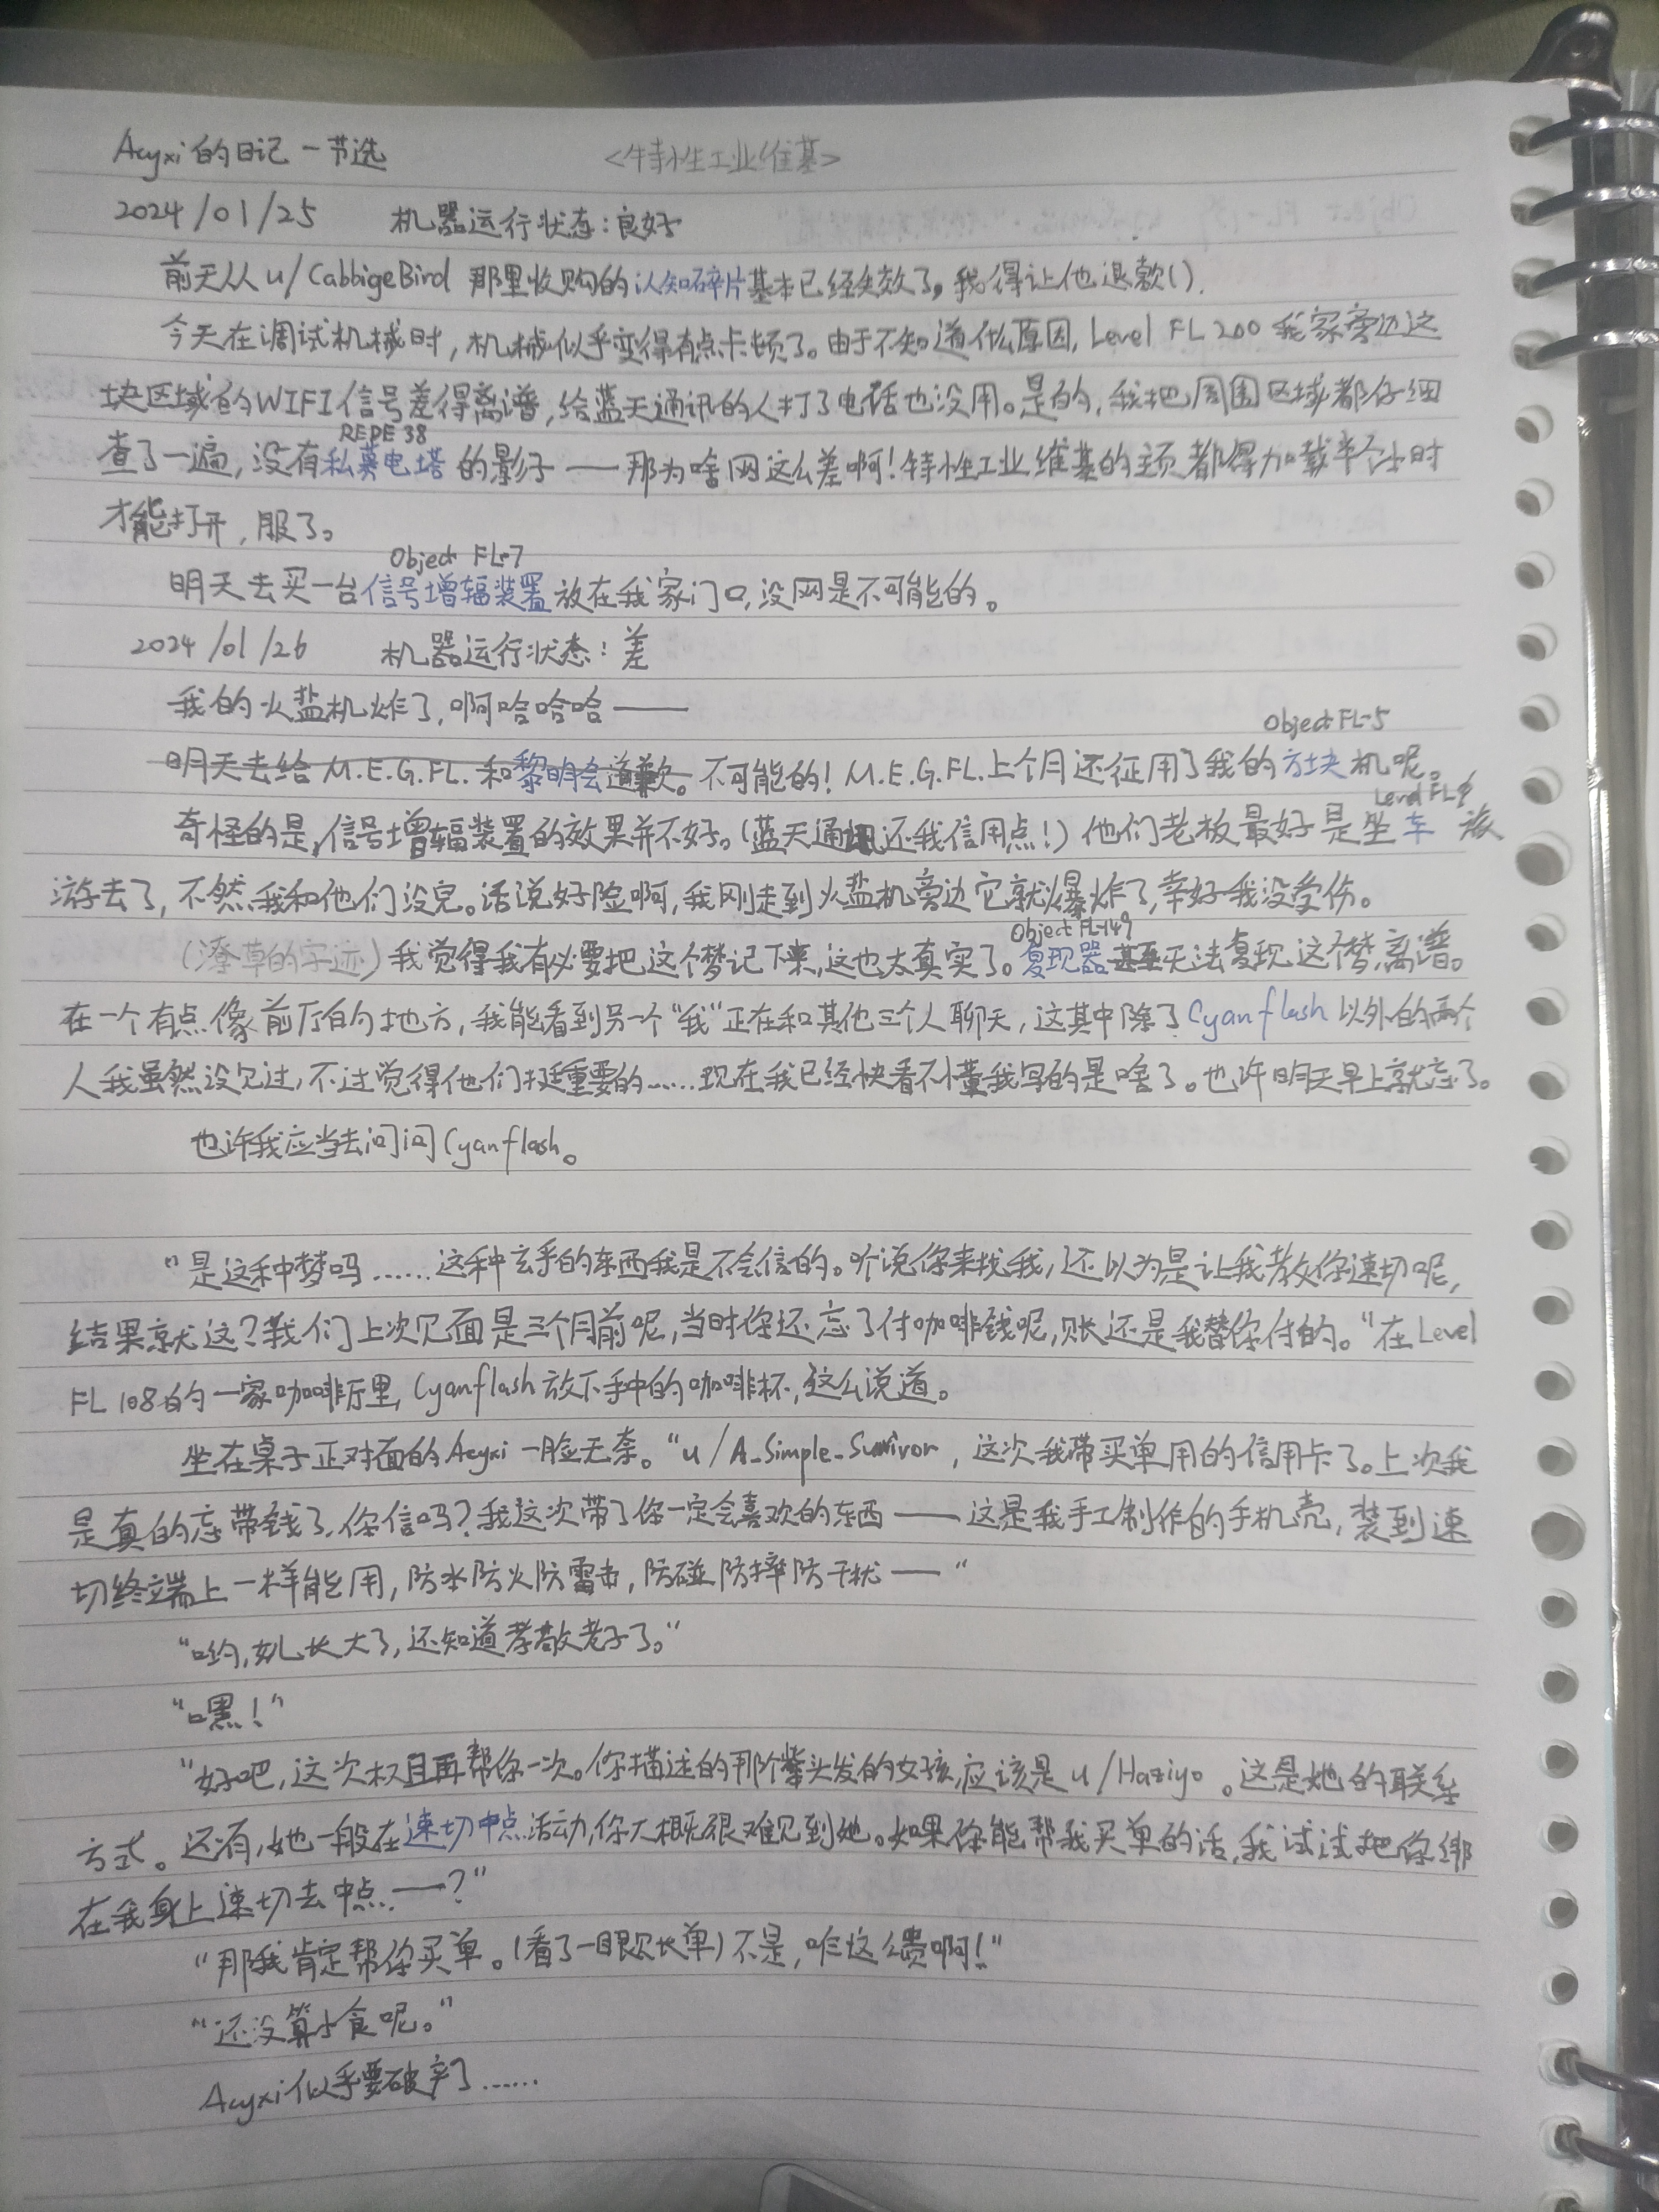 Acyxi的日记－节选 <特性工业维基>
2024/01/25 机器运行状态:良好
前天从u/CabbigeBird 那里收购的认知碎片基本已经失效了,我得让他退款().
今天在调试机械时,机械似乎变得有点卡顿了。由于不知道什么原因,Level FL 200 我家旁边这
块区域的WIFI信号差得离谱,给蓝天通讯的人打了电话也没用。是的,我把周围区域都仔细
REPE 38
查了一遍,没有私募电塔的影子——那为啥网这么差啊!特性工业维基的主页都得加载半个小时
才能打开,服了。
Object FL-7
明天去买一台信号增辐装置放在我家门口,没网是不可能的。
2024/01/26 机器运行状态:差
我的火盐机炸了,啊哈哈哈——
Object FL-5
明天去给M.E.G.FL.和黎明会道歉。不可能的!M.E.G.FL.上个月还征用了我的方块机呢。
Level FL 9
奇怪的是,信号增辐装置的效果并不好。(蓝天通讯还我信用点!)他们老板最好是坐车旅
游去了,不然我和他们没完。话说好险啊,我刚走到火盐机旁边它就爆炸了,幸好我没受伤。
Object FL-149
(潦草的字迹)我觉得我有必要把这个梦记下来,这也太真实了。复现器甚至无法复现这个梦,离谱。
在一个有点像前厅的地方,我能看到另一个“我”正在和其他三个人聊天,这其中除了Cyanflash以外的两个
人我虽然没见过,不过觉得他们挺重要的……现在我已经快看不懂我写的是啥了。也许明天早上就忘了。
也许我应当去问问Cyanflash。
“是这种梦吗……这种玄乎的东西我是不会信的。听说你来找我,还以为是让我教你速切呢,
结果就这?我们上次见面是三个月前呢,当时你还忘了付咖啡钱呢,账还是我替你付的。”在Level
FL 108的一家咖啡厅里,Cyanflash放下手中的咖啡杯,这么说道。
坐在桌子正对面的Acyxi一脸无奈。“u/A_Simple_Survivor,这次我带买单用的信用卡了。上次我
是真的忘带钱了,你信吗?我这次带了你一定会喜欢的东西——这是我手工制作的手机壳,装到速
切终端上一样能用,防水防火防雷击,防碰防摔防干扰——”
“哟,女儿长大了,还知道孝敬老子了。”
“嘿!”
“好吧,这次权且再帮你一次。你描述的那个紫头发的女孩,应该是u/Haziyo。这是她的联系
方式。还有,她一般在速切中点活动,你大概很难见到她。如果你能帮我买单的话,我试试把你绑
在我身上速切去中点——?”
“那我肯定帮你买单。(看了一眼账单)不是,咋这么贵啊!”
“还没算小食呢。”
Acyxi似乎要破产了……